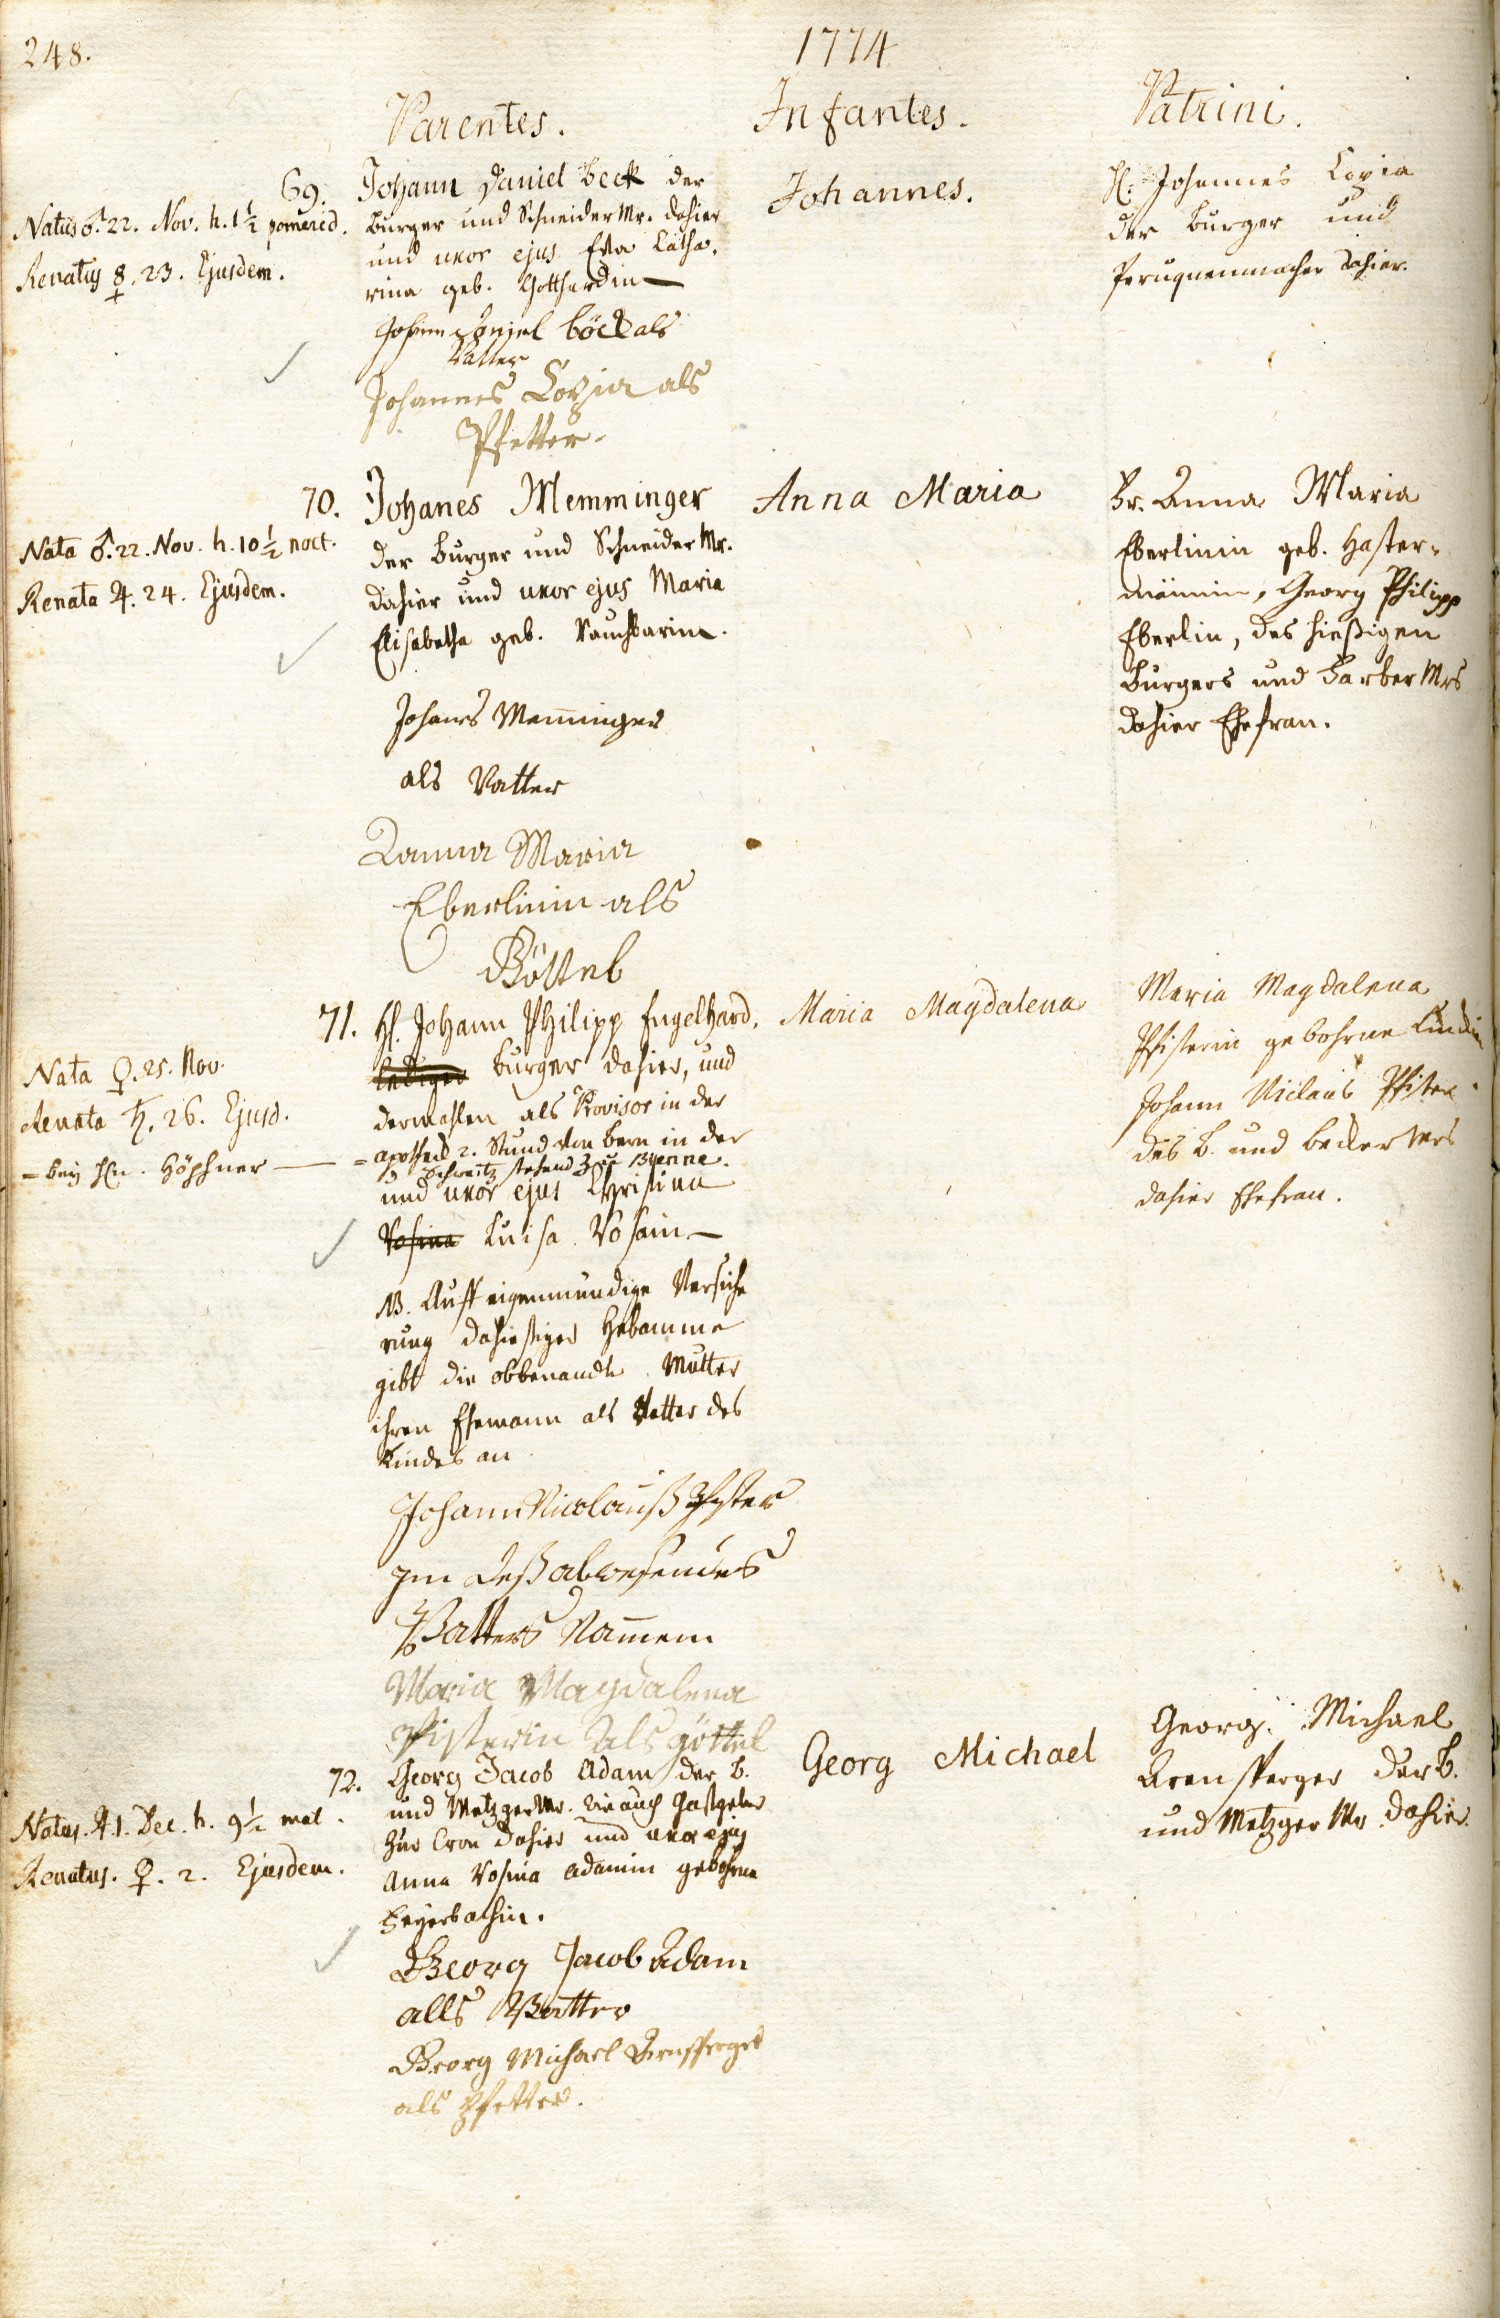 248.
1774
Parentes.
Infantes.
Patrini.
69.
Natus ♂. 22. Nov. h. 1½ pomerid.
Renatus ☿. 23. Ejusdem.
Johann Daniel Beck der
Burger und Schneider Mr. dahier
und uxor ejus Eva Catha-
rina geb. Gotthardin
Johann Daniel Böck als
Vatter
Johannes Loxia als
Pfetter.
Johannes.
H. Johannes Loxia
der Burger und
Peruquenmacher dahier.
70.
Nata ♂. 22. Nov. h. 10½ noct.
Renata ♃. 24. Ejusdem.
Johanes Memminger
der Burger und Schneider Mr.
dahier und uxor ejus Maria
Elisabetha geb.
Johanes Meminger
als Vatter
Anna Maria
Eberlinin als
Göttel
Anna Maria
Fr. Anna Maria
Eberlinin geb. Haster-
männin, Georg Philipp
Eberlin, des hießigen
Burgers und Farber Mrs
dahier Ehefrau.
71.
Nata ♀. 25. Nov.
Renata ♄. 26. Ejusd.
= bey Hn. Höpfner
H. Johann Philipp Engelhard,
lediger Burger dahier, und
dermahlen als Provisor in der
= Apotheck 2. Stund von Bern in der
Schweitz stehend zu Byenne.
und uxor ejus Christina
Rosina Luisa Rosain
NB. Auff eigenmündige Versiche
rung dahießiger Hebamme
gibt die obbenandte Mutter
ihren Ehemann als Vatter des
Kindes an
Johann Nicolauß Pfister
im deß abwesendes
Vatters Namem
Maria Magdalena
Pfisterin als göttel
Maria Magdalena
Maria Magdalena
Pfisterin gebohrne Lindin
Johann Niclaus Pfister
des B. und Becker Mrs
dahier Ehefrau.
72.
Natus. ♃. 1. Dec. h. 9½ mat.
Renatus. ♀. 2. Ejusdem.
Georg Jacob Adam der B.
und Metzger Mr. wie auch Gastgeber
zur Cron dahier und uxor ejus
Anna Rosina Adamin gebohrne
Beyerbachin.
Georg Jacob Adam
alls Vatter
Georg Michael Arensperger
als Pfetter.
Georg Michael
Georg Michael
Arensperger der B.
und Metzger Mr dahier.